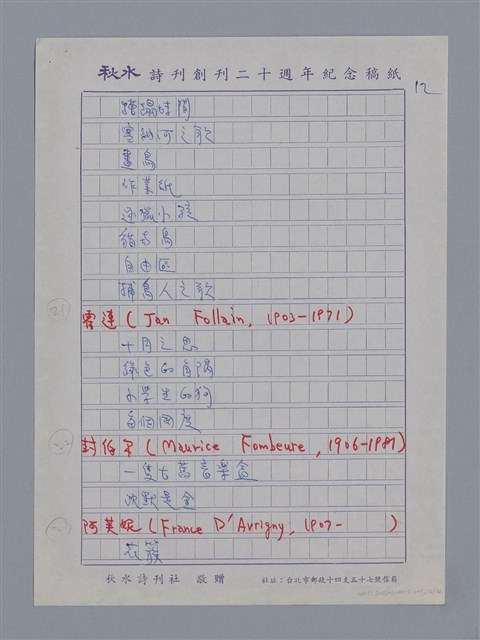 秋水 詩刊創刊二十週年紀念稿紙
12
蹧蹋時間
塞納河之歌
畫鳥
作業紙
逃獵小孩
貓與鳥
自由區
捕鳥人之歌
21
(Jan Follain, 1903-1971)
十月之思
綠色的角隅
小學生的狗
每個國度
22
封伯罕 (Maurice Fombeure, 1906-1981)
一隻七舊音樂盒
沈默是金
阿芙妮 (France D'Avrigny, 1907-    )
花簇
秋水詩刊社 敬贈
社址：台北市郵政十四支五十七號信箱